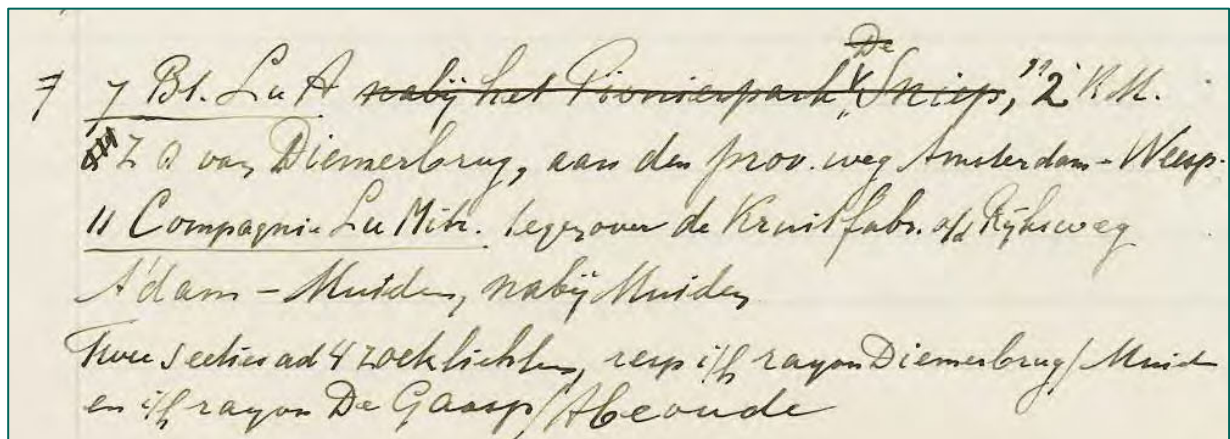 7 7 Bt. Lu A nabij het Pionierpark "De Sniep," 2 K.M.
Z O van Diemerbrug, aan den prov. weg Amsterdam-Weesp.
11 Compagnie Lu Mitr. tegenover de Kruitfabr. a/d Rijksweg
A'dam - Muiden, nabij Muiden
Twee secties ad 4 zoeklichten, resp i/h rayon Diemerbrug/Muid
en i/h rayon De Gaasp/Abcoude